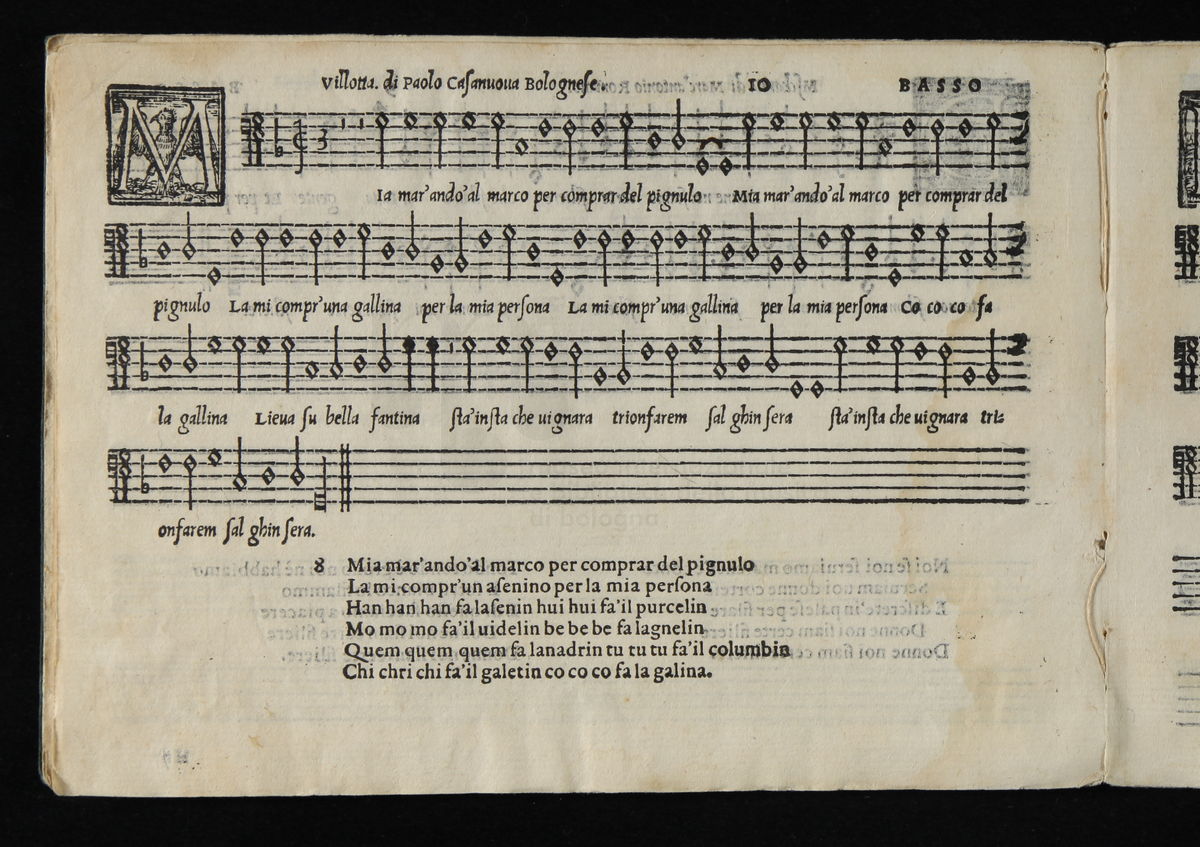 Villotta. di Paolo Caſanuoua Bologneſe. 10 BASSO
M Ia mar'ando'al marco per comprar del pignulo Mia mar'ando'al marco per comprar del
pignulo La mi compr'una gallina per la mia perſona La mi compr'una gallina per la mia perſona Co co co fa
la gallina Lieua ſu bella fantina ſta'inſta che uignara trionfarem ſal ghin ſera ſta'inſta che uignara tri=
onfarem ſal ghin ſera.
di bologna
8 Mia mar'ando'al marco per comprar del pignulo
La mi compr'un aſenino per la mia perſona
Han han han fa laſenin hui hui fa'il purcelin
Mo mo mo fa'il uidelin be be be fa lagnelin
Quem quem quem fa lanadrin tu tu tu fa'il columbin
Chi chri chi fa'il galetin co co co fa la galina.